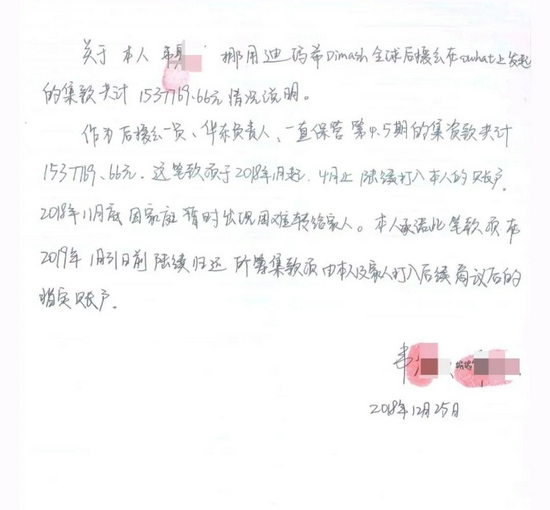 关于本人韦 挪用迪玛希Dimash全球后援会在owhat上发起
的集款共计1537769.66元情况说明。
作为后援会一员、华东负责人、一直保管第4.5期的集资款共计
1537769.66元。这笔款项于2018年1月起.4月止陆续打入本人的账户.
2018年11月底因家庭暂时出现困难转给家人。本人承诺此笔款项在
2019年1月31日前陆续归还 所筹集款项由本人及家人打入后续商议后的
指定账户.
韦
2018年12月25日